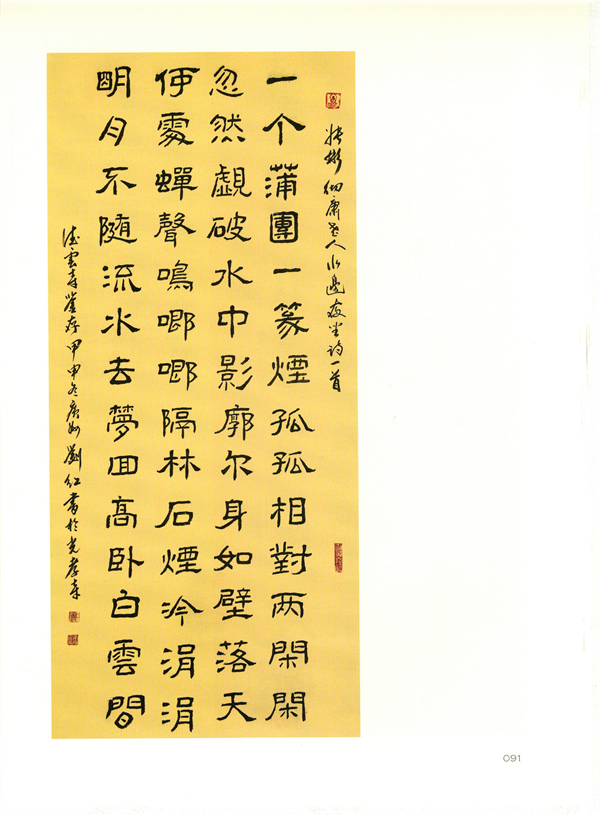 人水邊夜坐詩一首
一个蒲團一篆煙孤孤相對两閑閑
忽然覷破水中影廓尔身如壁落天
處蟬聲鳴唧唧隔林石煙泠涓涓
明月不隨流水去夢回高卧白雲間
雲寺鑒存甲申冬廣州劉紅書於光孝寺
091